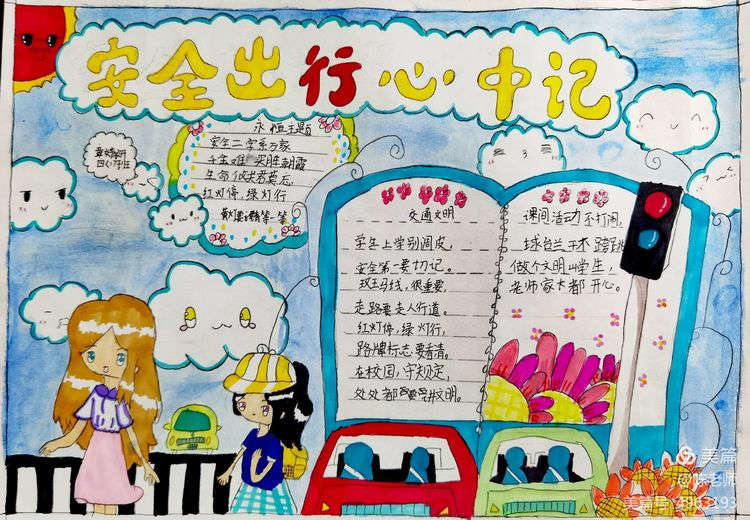 安全出行心中记
永恒主题
安全二字系万家
千金难买胜朝霞
生命仅
红灯停,绿灯行
交通文明
学生上学别调皮,
安全第一要切记。
斑马线,很重要,
走路要走人行道。
红灯停,绿灯行,
路牌标志要看清。
在校园,守规定,
处处都要讲文明。
课间活动不打闹,
做个文明小学生,
老师家长都开心。
美篇
@陈老师